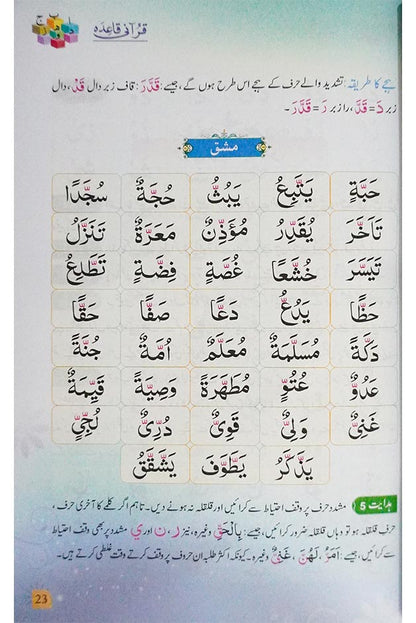 قرآنی قاعدہ
ہجے کا طریقہ: تشدید والے حرف کے ہجے اس طرح ہوں گے، جیسے: قَدَّرَ: قاف زبر دال قَدْ، دال
زبر دَ = قَدَّ، را زبر رَ = قَدَّرَ۔
مشق
حَبَّةٍ يَتَّبِعُ يَبُثُّ حُجَّةٌ سُجَّدًا
تَاَخَّرَ يُقَدِّرُ مُؤَذِّنٌ مَعَرَّةٌ تَنَزَّلُ
تَيَسَّرَ خُشَّعًا غُصَّةٍ فِضَّةٍ تَطَّلِعُ
حَظًّا يَدُعُّ دَعًّا صَفًّا حَقًّا
دَكَّةً مُسَلَّمَةٌ مُعَلَّمٌ اُمَّةٌ جُنَّةٌ
عَدُوٌّ عُتُوٍّ مُطَهَّرَةً وَصِيَّةً قَيِّمَةٌ
غَنِيٌّ وَلِيٌّ قَوِيٌّ دُرِّيٌّ لُجِّيٍّ
يَذَّكَّرُ يَطَّوَّفَ يَشَّقَّقُ
ہدایت 5 مشدد حرف پر وقف احتیاط سے کرائیں اور قلقلہ نہ ہونے دیں۔ تاہم اگر کلمے کا آخری حرف،
حرفِ قلقلہ ہو تو وہاں قلقلہ ضرور کرائیں، جیسے: بِالْحَقِّ وغیرہ، نیز ر، ن اور ي مشدد پر بھی وقف احتیاط
سے کرائیں، جیسے: اَمَرُّ، لَهُنَّ، غَنِيٌّ وغیرہ۔ کیونکہ اکثر طلبہ ان حروف پر وقف کرتے وقت غلطی کرتے ہیں۔
23